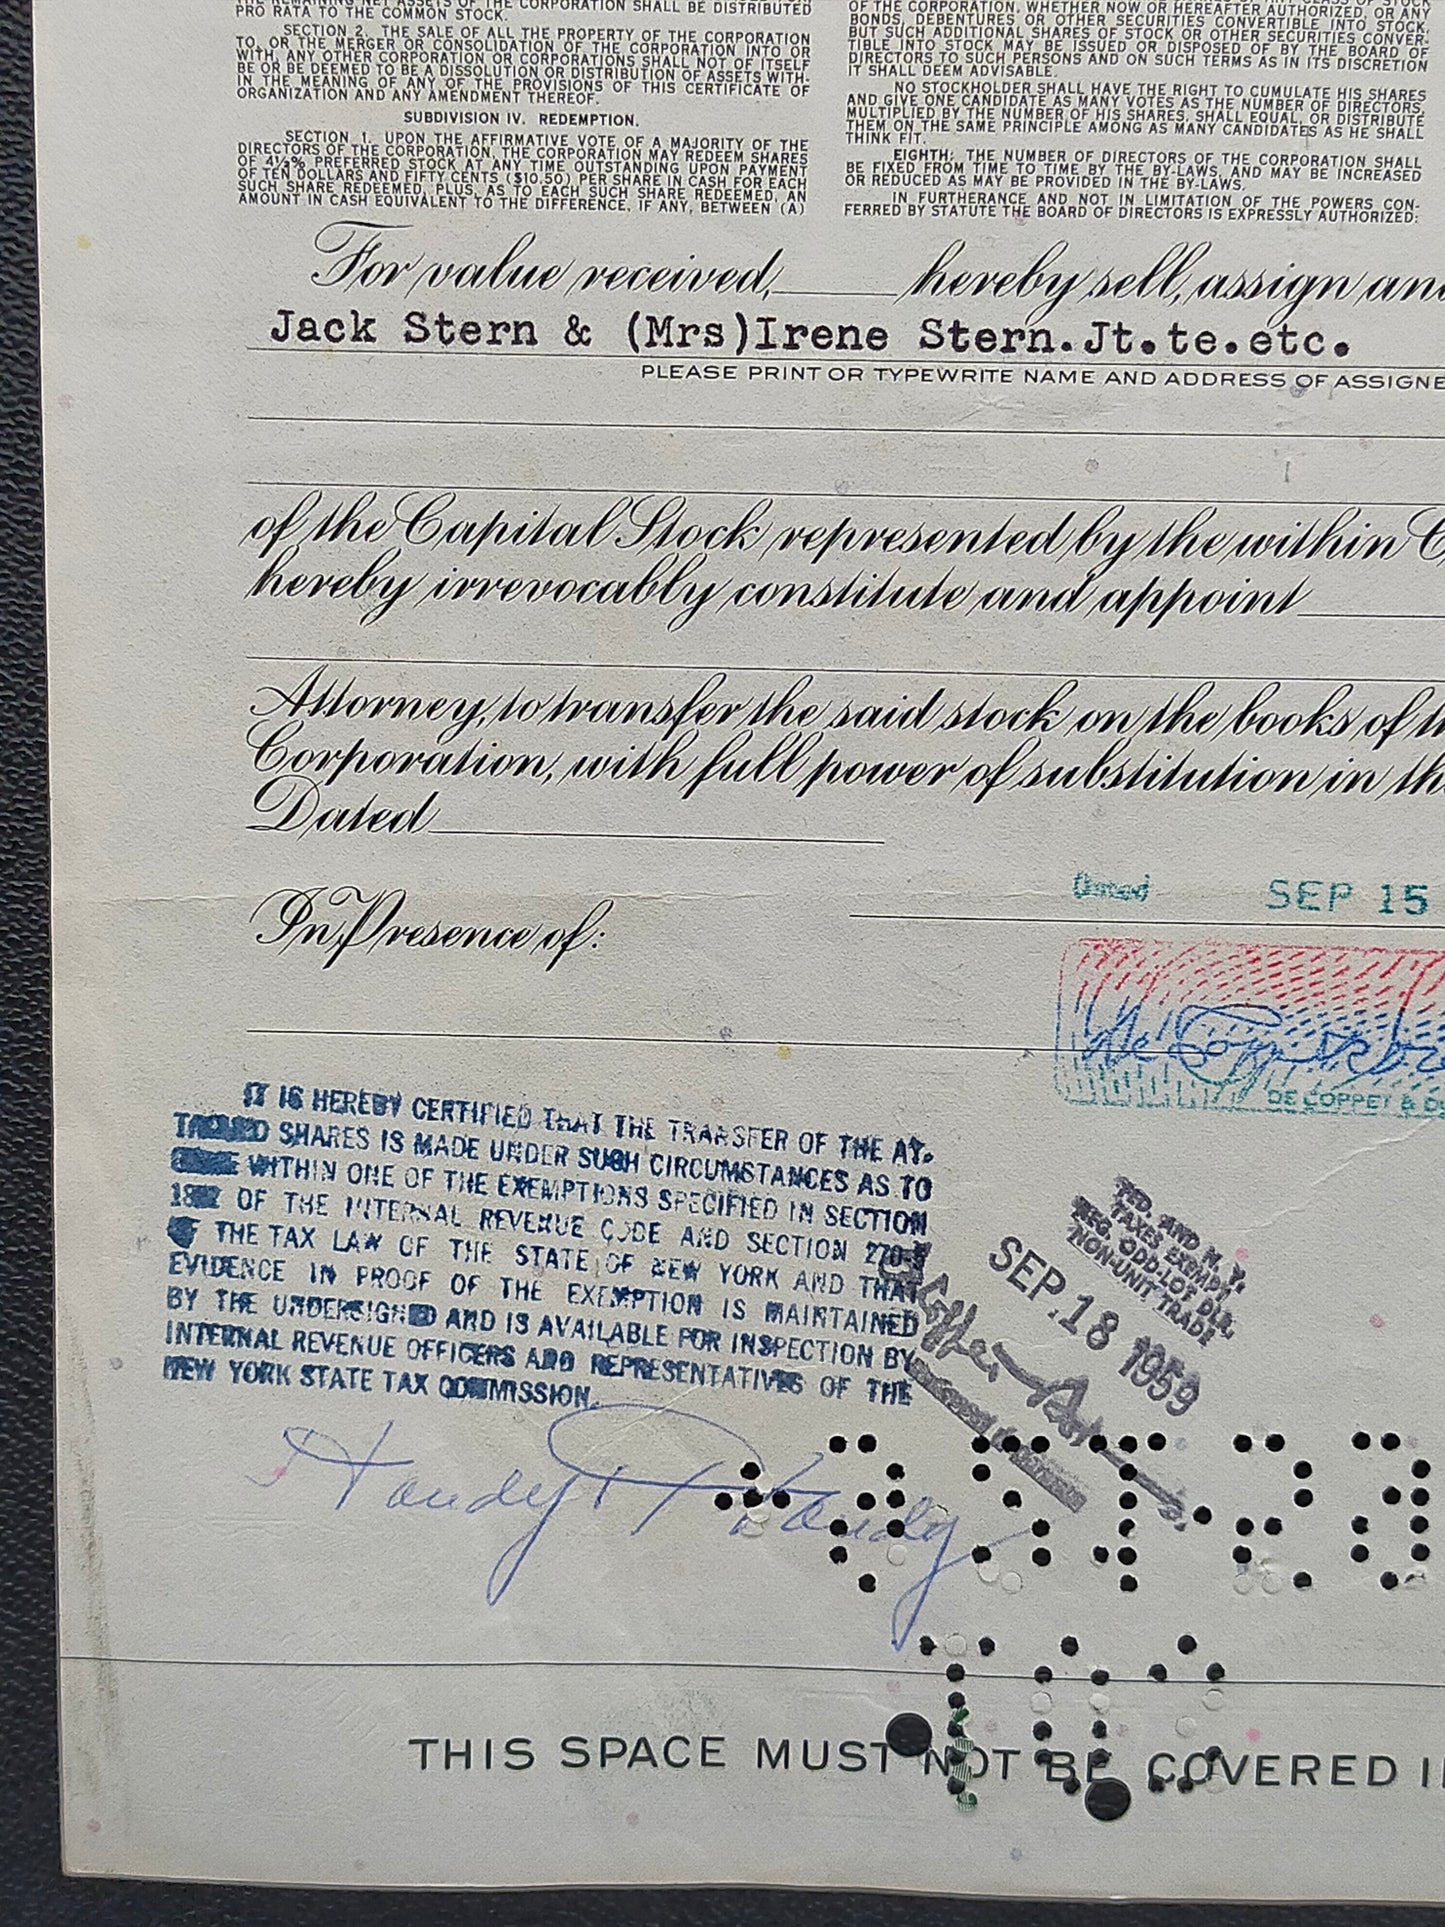 PRO RATA TO THE COMMON STOCK.
SECTION 2. THE SALE OF ALL THE PROPERTY OF THE CORPORATION
TO, OR THE MERGER OR CONSOLIDATION OF THE CORPORATION INTO OR
WITH, ANY OTHER CORPORATION OR CORPORATIONS SHALL NOT OF ITSELF
BE OR BE DEEMED TO BE A DISSOLUTION OR DISTRIBUTION OF ASSETS WITH-
IN THE MEANING OF ANY OF THE PROVISIONS OF THIS CERTIFICATE OF
ORGANIZATION AND ANY AMENDMENT THEREOF.
SUBDIVISION IV. REDEMPTION.
SECTION 1. UPON THE AFFIRMATIVE VOTE OF A MAJORITY OF THE
DIRECTORS OF THE CORPORATION, THE CORPORATION MAY REDEEM SHARES
OF 4½% PREFERRED STOCK AT ANY TIME OUTSTANDING UPON PAYMENT
OF TEN DOLLARS AND FIFTY CENTS ($10.50) PER SHARE IN CASH FOR EACH
SUCH SHARE REDEEMED, PLUS, AS TO EACH SUCH SHARE REDEEMED, AN
AMOUNT IN CASH EQUIVALENT TO THE DIFFERENCE, IF ANY, BETWEEN (A)
OF THE CORPORATION, WHETHER NOW OR HEREAFTER AUTHORIZED, OR ANY
BONDS, DEBENTURES OR OTHER SECURITIES CONVERTIBLE INTO STOCK,
BUT SUCH ADDITIONAL SHARES OF STOCK OR OTHER SECURITIES CONVER-
TIBLE INTO STOCK MAY BE ISSUED OR DISPOSED OF BY THE BOARD OF
DIRECTORS TO SUCH PERSONS AND ON SUCH TERMS AS IN ITS DISCRETION
IT SHALL DEEM ADVISABLE.
NO STOCKHOLDER SHALL HAVE THE RIGHT TO CUMULATE HIS SHARES
AND GIVE ONE CANDIDATE AS MANY VOTES AS THE NUMBER OF DIRECTORS,
MULTIPLIED BY THE NUMBER OF HIS SHARES, SHALL EQUAL, OR DISTRIBUTE
THEM ON THE SAME PRINCIPLE AMONG AS MANY CANDIDATES AS HE SHALL
THINK FIT.
EIGHTH: THE NUMBER OF DIRECTORS OF THE CORPORATION SHALL
BE FIXED FROM TIME TO TIME BY THE BY-LAWS, AND MAY BE INCREASED
OR REDUCED AS MAY BE PROVIDED IN THE BY-LAWS.
IN FURTHERANCE AND NOT IN LIMITATION OF THE POWERS CON-
FERRED BY STATUTE THE BOARD OF DIRECTORS IS EXPRESSLY AUTHORIZED:
For value received, hereby sell, assign and
Jack Stern & (Mrs)Irene Stern.Jt.te.etc.
PLEASE PRINT OR TYPEWRITE NAME AND ADDRESS OF ASSIGNE
of the Capital Stock represented by the within C
hereby irrevocably constitute and appoint
Attorney, to transfer the said stock on the books of th
Corporation, with full power of substitution in the
Dated
Dated SEP 15
In Presence of:
DE COPPET & D
IT IS HEREBY CERTIFIED THAT THE TRANSFER OF THE AT-
TACHED SHARES IS MADE UNDER SUCH CIRCUMSTANCES AS TO
COME WITHIN ONE OF THE EXEMPTIONS SPECIFIED IN SECTION
OF THE INTERNAL REVENUE CODE AND SECTION 270-5
OF THE TAX LAW OF THE STATE OF NEW YORK AND THAT
EVIDENCE IN PROOF OF THE EXEMPTION IS MAINTAINED
BY THE UNDERSIGNED AND IS AVAILABLE FOR INSPECTION BY
INTERNAL REVENUE OFFICERS AND REPRESENTATIVES OF THE
NEW YORK STATE TAX COMMISSION.
FED. AND N. Y.
TAXES EXEMPT
REG. ODD-LOT DLR.
NON-UNIT TRADE
SEP. 18 1959
THIS SPACE MUST NOT BE COVERED I